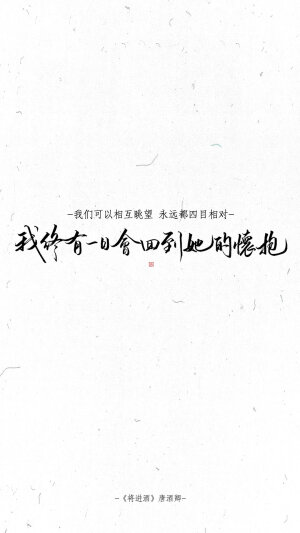 -我们可以相互眺望 永远都四目相对-
我终有一日會回到她的懷抱
-《将进酒》唐酒卿-